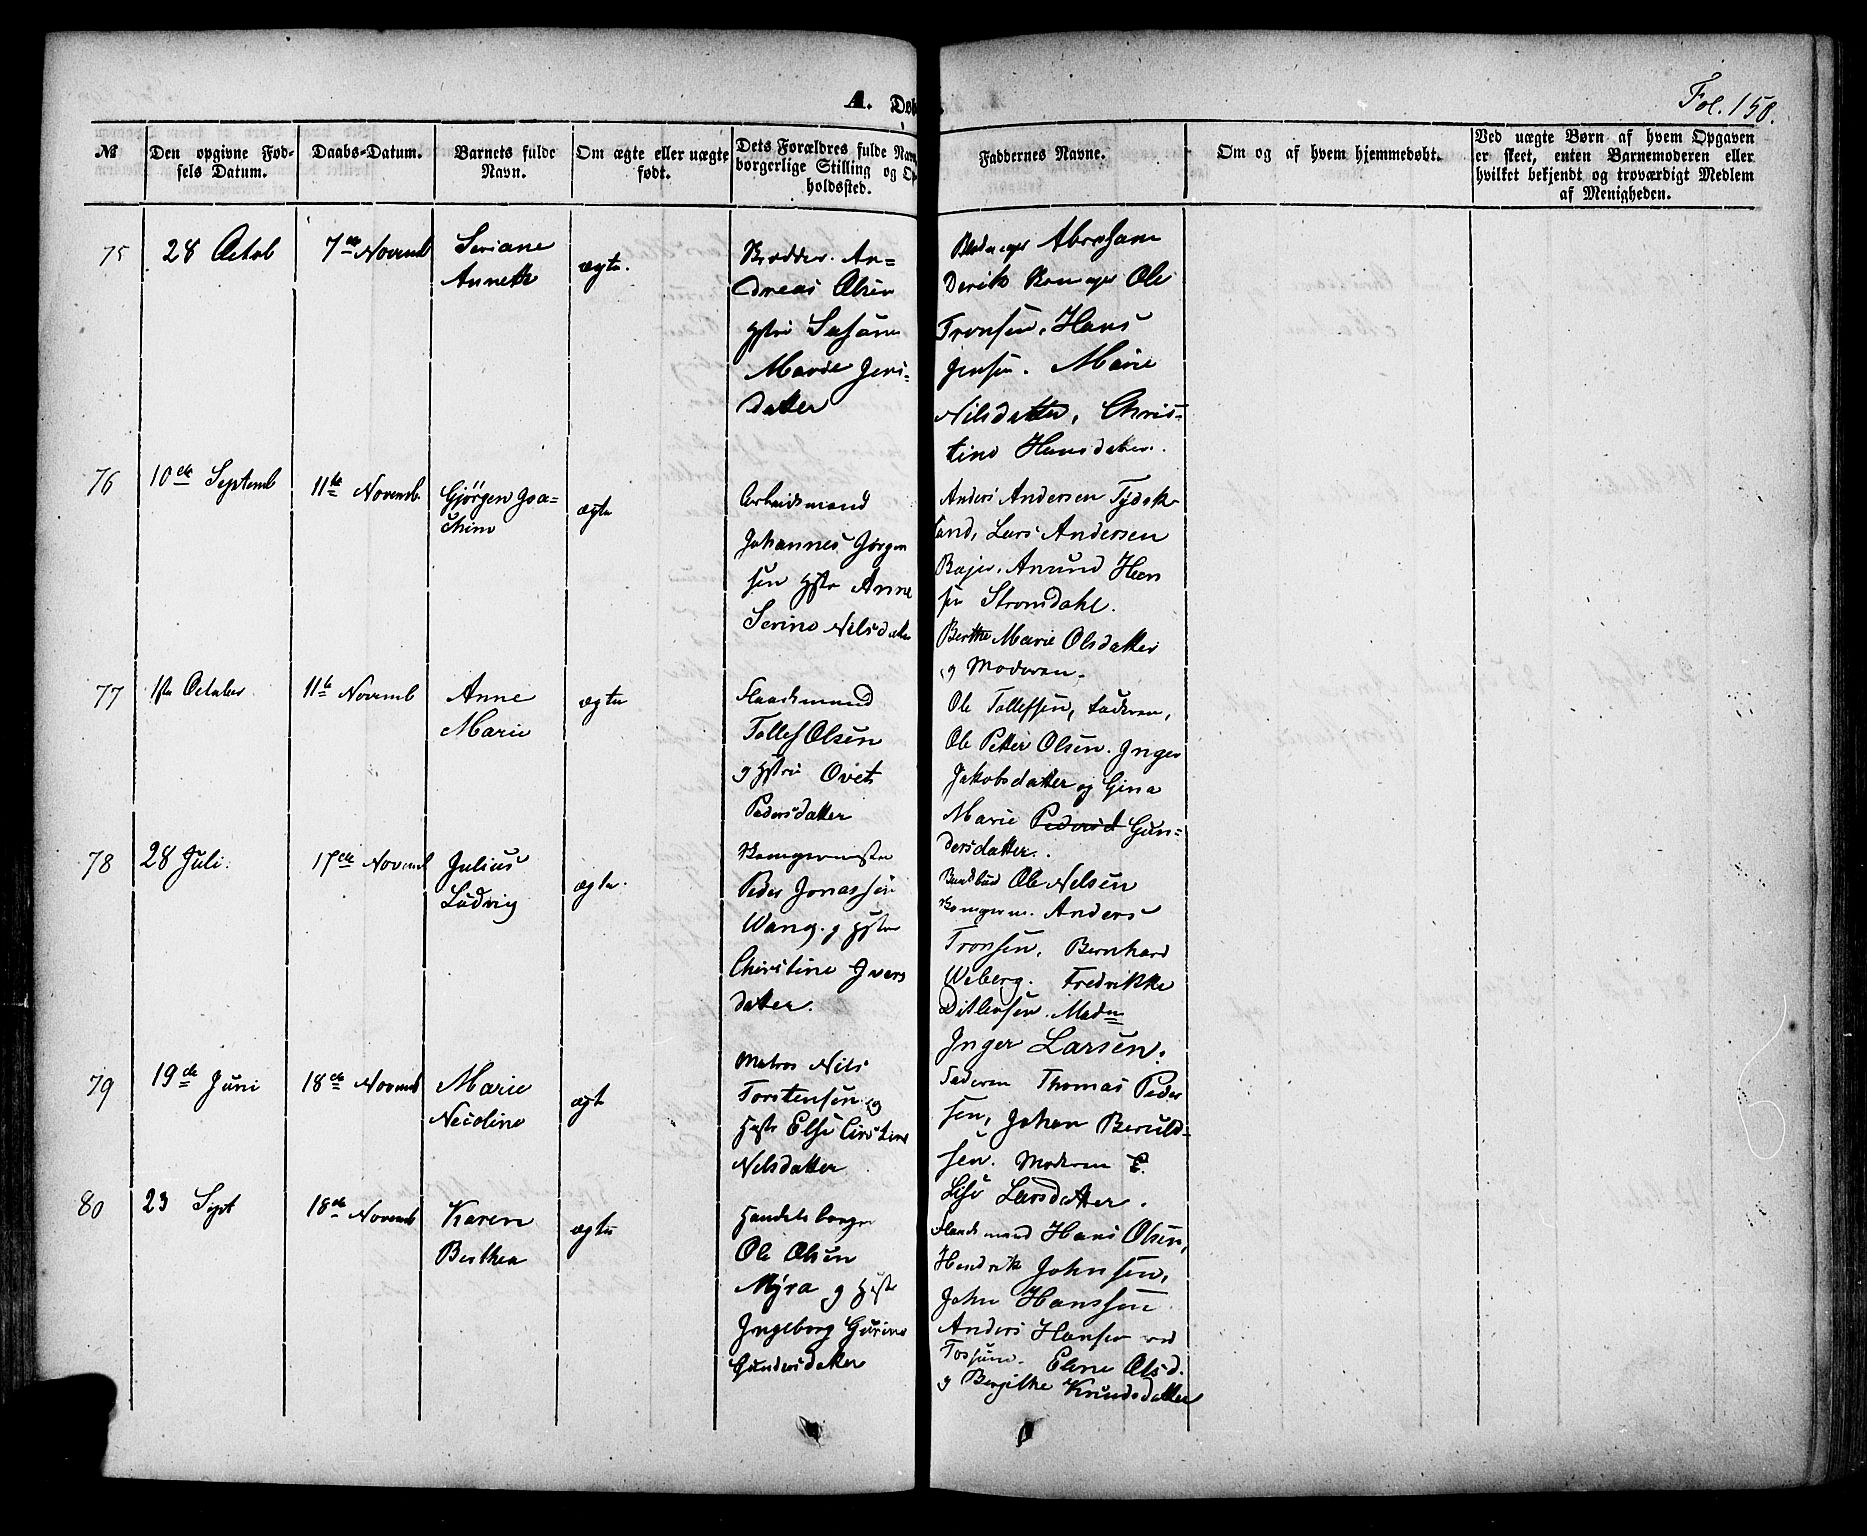 A. Døb
Fol. 158.
No
Den opgivne Fød-
sels Datum.
Daabs-Datum.
Barnets fulde
Navn.
Om ægte eller uægte
født.
Dets Forældres fulde Nav
borgerlige Stilling og Op
holdssted.
Faddernes Navne.
Om og af hvem hjemmedøbt.
Ved uægte Børn af hvem Opgaven
er skeet, enten Barnemoderen eller
hvilket bekjendt og troværdigt Medlem
af Menigheden.
75
28 Octob
7de Novemb
Seriane
Annette
ægte.
An=
dreas Olsen
Hstr Susanne
Marie Jens=
datter
Abraham
Ole
Tronsen, Hans
Jensen. Marie
Nilsdatter, Chris=
tine Hansdatter.
76
10de Septemb
11te Novemb
Gjörgen Joa=
chim
ægte
Arbeidsmand
Johannes Jörgen
sen Hstr Anne
Serine Nilsdatter
Anders Andersen Tydsk
land, Lars Andersen
Anund Han
sen Stromdahl.
Berthe Marie Olsdatter
og Moderen.
77
1ste October
11te Novemb
Anne
Marie
ægte
Tollef Olsen
og Hstr
Pedersdatter
Ole Tollefsen, Faderen,
Ole Petter Olsen. Inger
Jakobsdatter og Gina
Marie Pedersd Gun=
dersdatter.
78
28 Juli.
17de Novemb
Julius
Ludvig
ægte.
Peder Jonassen
Wang. og Hstr
Christine Ivers
datter.
Ole Nelsen
Anders
Tronsen, Bernhard
Weberg. Fredrikke
Ditlevsen. Mad
Inger Larsen.
79
19de Juni
18de Novemb
Marie
Nicoline
ægte
Matros Nils
Torstensen og
Hstr Else Cirstine
Nelsdatter
Faderen Thomas Peder
sen, Johan Beruld=
sen. Moderen E.
Lise Larsdatter.
80
23 Sept
18de Novemb
Karen
Berthea
ægte
Handelsborger
Ole Olsen
Myra og Hstr
Ingeborg Gurine
Gundersdatter
Hans Olsen,
Hendrik Johnsen,
John Hanssen
Anders Hansen ved
Fossum. Elene Olsd.
og Bergithe Knudsdatter